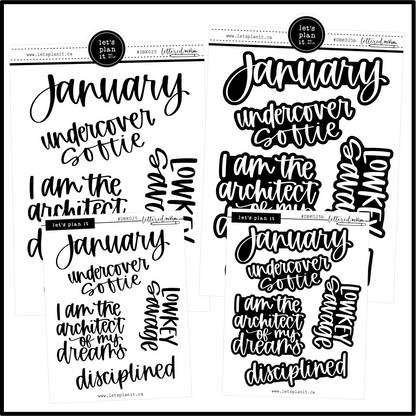 let's
plan
it
www.letsplanit.ca
#DBK025
lettered mom
January
undercover
softie
I am the
architect
Lowkey
Sav
let's
plan
it
www.letsplanit.ca
#DBK025b
January
undercover
softie
I am the
architect
Lowkey
let's plan it
#DBK025
January
undercover
softie
I am the
architect
of my
dreams
Lowkey
Savage
disciplined
www.letsplanit.ca
let's plan it
#DBK025b
January
undercover
softie
I am the
architect
of my
dreams
Lowkey
Savage
disciplined
www.letsplanit.ca